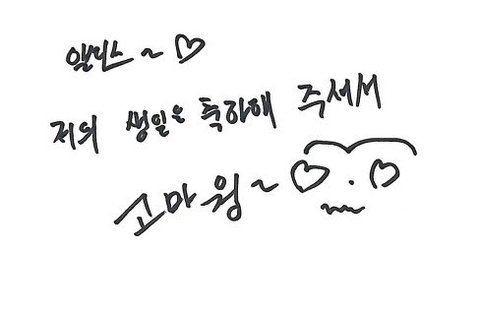 앨리스~♡
저의 생일은 축하해 주셔서
고마웡~